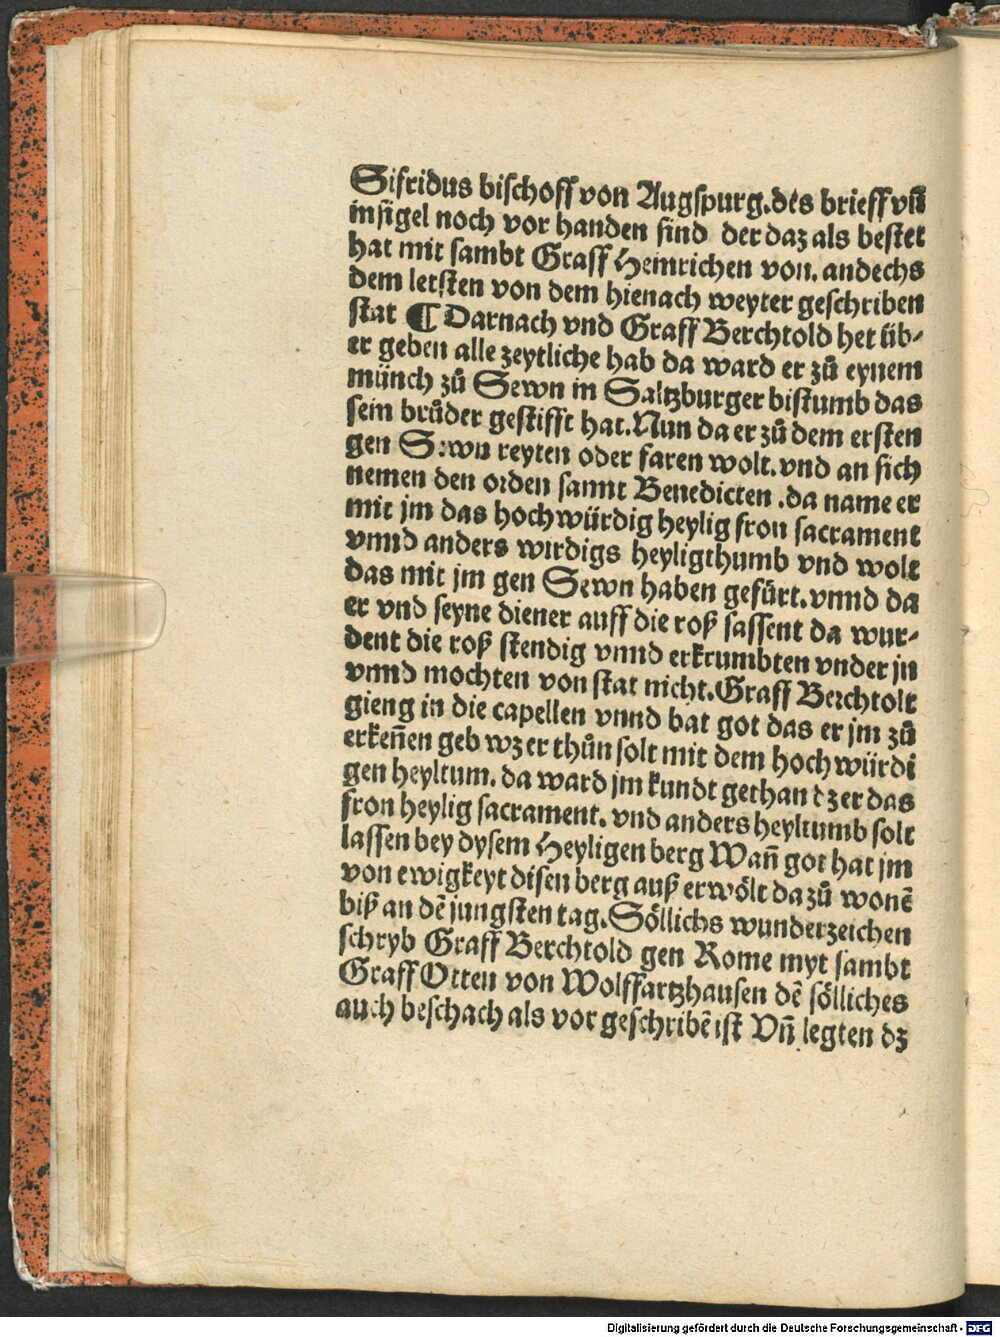 Sifridus bischoff von Augspurg.des brieff vñ
insigel noch vor handen sind der daz als bestet
hat mit sambt Graff Heinrichen von. andechs
dem letsten von dem hienach weyter geschriben
stat ¶ Darnach vnd Graff Berchtold het üb⸗
er geben alle zeytliche hab da ward er zů eynem
münch zů Sewn in Saltzburger bistumb das
sein brůder gestifft hat.Nun da er zů dem ersten
gen Sewn reyten oder faren wolt.vnd an sich
nemen den orden sannt Benedicten .da name er
mit jm das hochwürdig heylig fron sacrament
vnnd anders wirdigs heyligthumb vnd wolt
das mit jm gen Sewn haben gefürt.vnnd da
er vnd seyne diener auff die roß sassent da wur⸗
dent die roß stendig vnnd erkrumbten vnder jn
vnnd mochten von stat nicht.Graff Berchtolt
gieng in die capellen vnnd bat got das er jm zů
erkeñen geb wz er thůn solt mit dem hochwürdi
gen heyltum. da ward jm kundt gethan dz er das
fron heylig sacrament. vnd anders heyltumb solt
lassen bey dysem Heyligen berg Wañ got hat jm
von ewigkeyt disen berg auß erwölt da zů wonē
biß an dē jungsten tag.Söllichs wunderzeichen
schryb Graff Berchtold gen Rome myt sambt
Graff Otten von Wolffartzhausen dē sölliches
auch beschach als vor geschribē ist Vñ legten dz
Digitalisierung gefördert durch die Deutsche Forschungsgemeinschaft - DFG